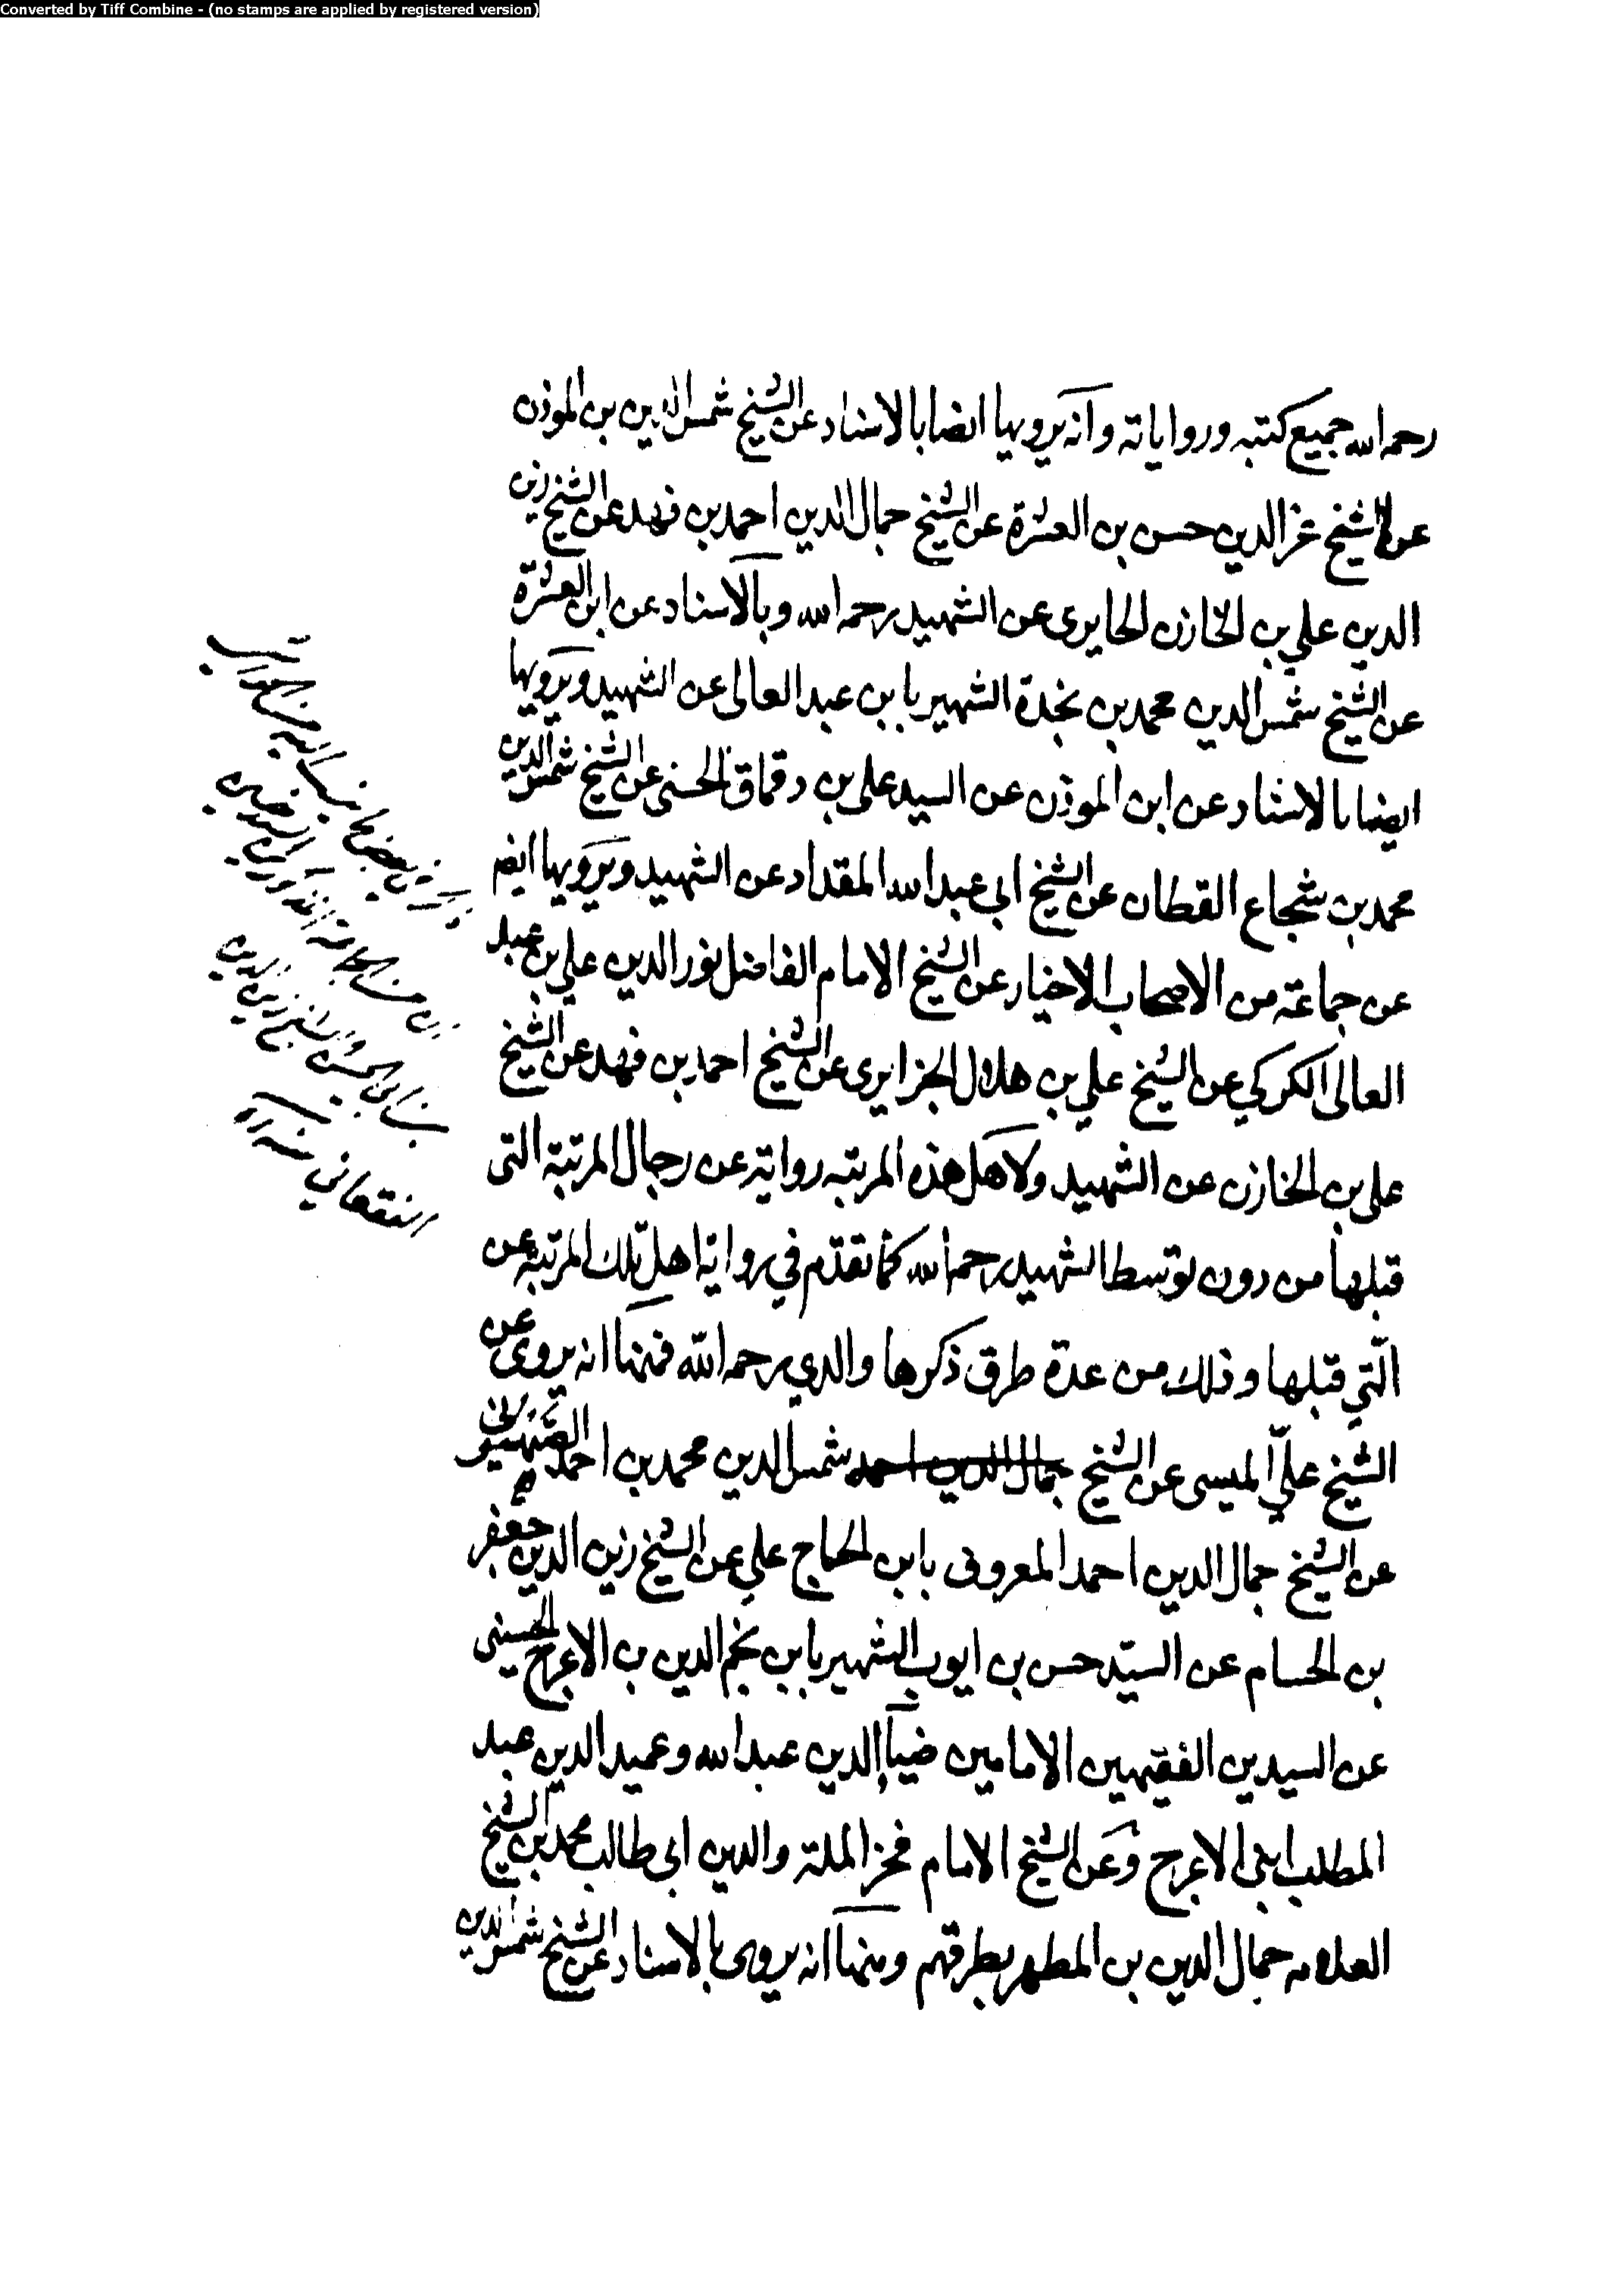 Converted by Tiff Combine - (no stamps are applied by registered version)
رحمه الله جميع كتبه ورواياته وانه يرويها ايضا بالاسناد عن الشيخ شمس الدين بن الموذن
عن الشيخ عز الدين حسن بن العشرة عن الشيخ جمال الدين احمد بن فهد عن الشيخ زين
الدين علي بن الخازن الحايرى عن الشهيد رحمه الله وبالاسناد عن ابن العشرة
عن الشيخ شمس الدين محمد بن نجدة الشهير بابن عبد العالى عن الشهيد ويرويها
ايضا بالاسناد عن ابن الموذن عن السيد على بن دقماق الحسنى عن الشيخ شمس الدين
محمد بن شجاع القطان عن الشيخ ابي عبد الله المقداد عن الشهيد ويرويها ايضا
عن جماعة من الاصحاب الاخيار عن الشيخ الامام الفاضل نور الدين علي بن عبد
العالى الكركي عن الشيخ علي بن هلال الجزايرى عن الشيخ احمد بن فهد عن الشيخ
على بن الخازن عن الشهيد ولاهل هذه المرتبه رواية عن رجال المرتبة التى
قبلها من دون توسط الشهيد رحمه الله كما تقدم في رواية اهل تلك المرتبة عن
الّتي قبلها وذلك من عدة طرق ذكرها والدي رحمه الله فمنها انه يروى عن
الشيخ عليّ الميسى عن الشيخ جمال الدين احمد شمس الدين محمد بن احمد الصهيوني
عن الشيخ جمال الدين احمد المعروف بابن الحاج علي عن الشيخ زين الدين جعفر
بن الحسام عن السيّد حسن بن ايوب الشهير بابن نجم الدين بن الاعرج الحسينى
عن السيدين الفقيهين الامامين ضياء الدين عبد الله وعميد الدين عبد
المطلب ابنى الاعرج وعن الشيخ الامام فخر الملة والدين ابى طالب محمد بن الشيخ
العلامه جمال الدين بن المطهر بطرقهم ومنها انه يروى بالاسناد عن الشيخ شمس الدين